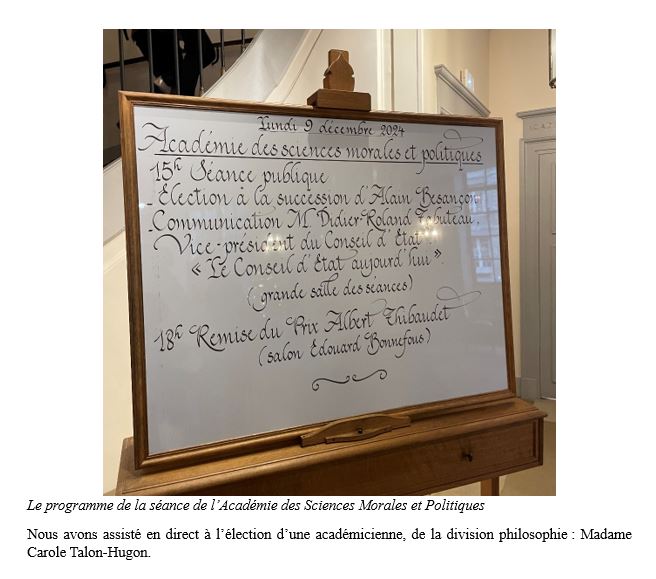 Lundi 9 décembre 2024
Académie des sciences morales et politiques
15h Séance publique
- Election à la succession d'Alain Besançon
- Communication M. Didier-Roland Tabuteau,
Vice-président du Conseil d'Etat :
« Le Conseil d'Etat aujourd'hui ».
(grande salle des séances)
18h Remise du Prix Albert Thibaudet
(salon Edouard Bonnefous)
Le programme de la séance de l'Académie des Sciences Morales et Politiques
Nous avons assisté en direct à l'élection d'une académicienne, de la division philosophie : Madame
Carole Talon-Hugon.